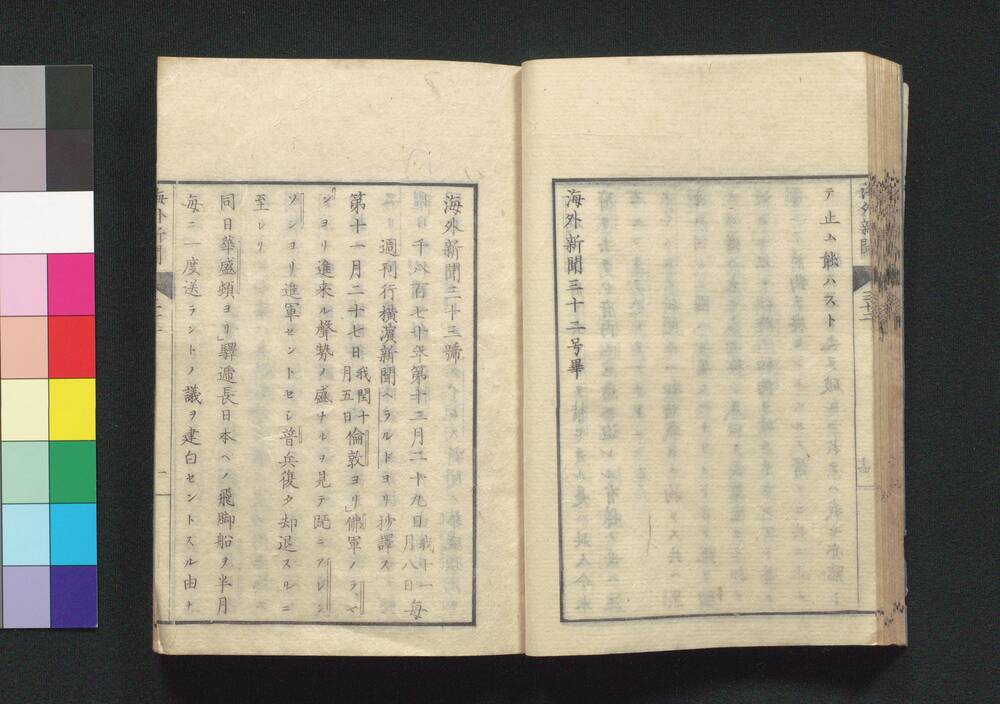 海外新聞
三十二
テ止ム能ハスト
海外新聞三十二号畢
海外新聞三十三號
千八百七十年第十二月二十九日我十一月八日毎
週刊行横濱新聞ヘラルドヨリ抄譯ス
第十一月二十七日我閏十月五日倫敦ヨリ」佛軍ノ
ヨリ進来ル聲勢ノ盛ナルヲ見テ既ニアレン
ソンヨリ進軍セントセシ普兵復タ却退スルニ
至レリ
同日華盛頓ヨリ」驛逓長日本ヘノ飛脚船ヲ半月
毎ニ一度送ラントノ議ヲ建白セントスル由ナ
海外新聞